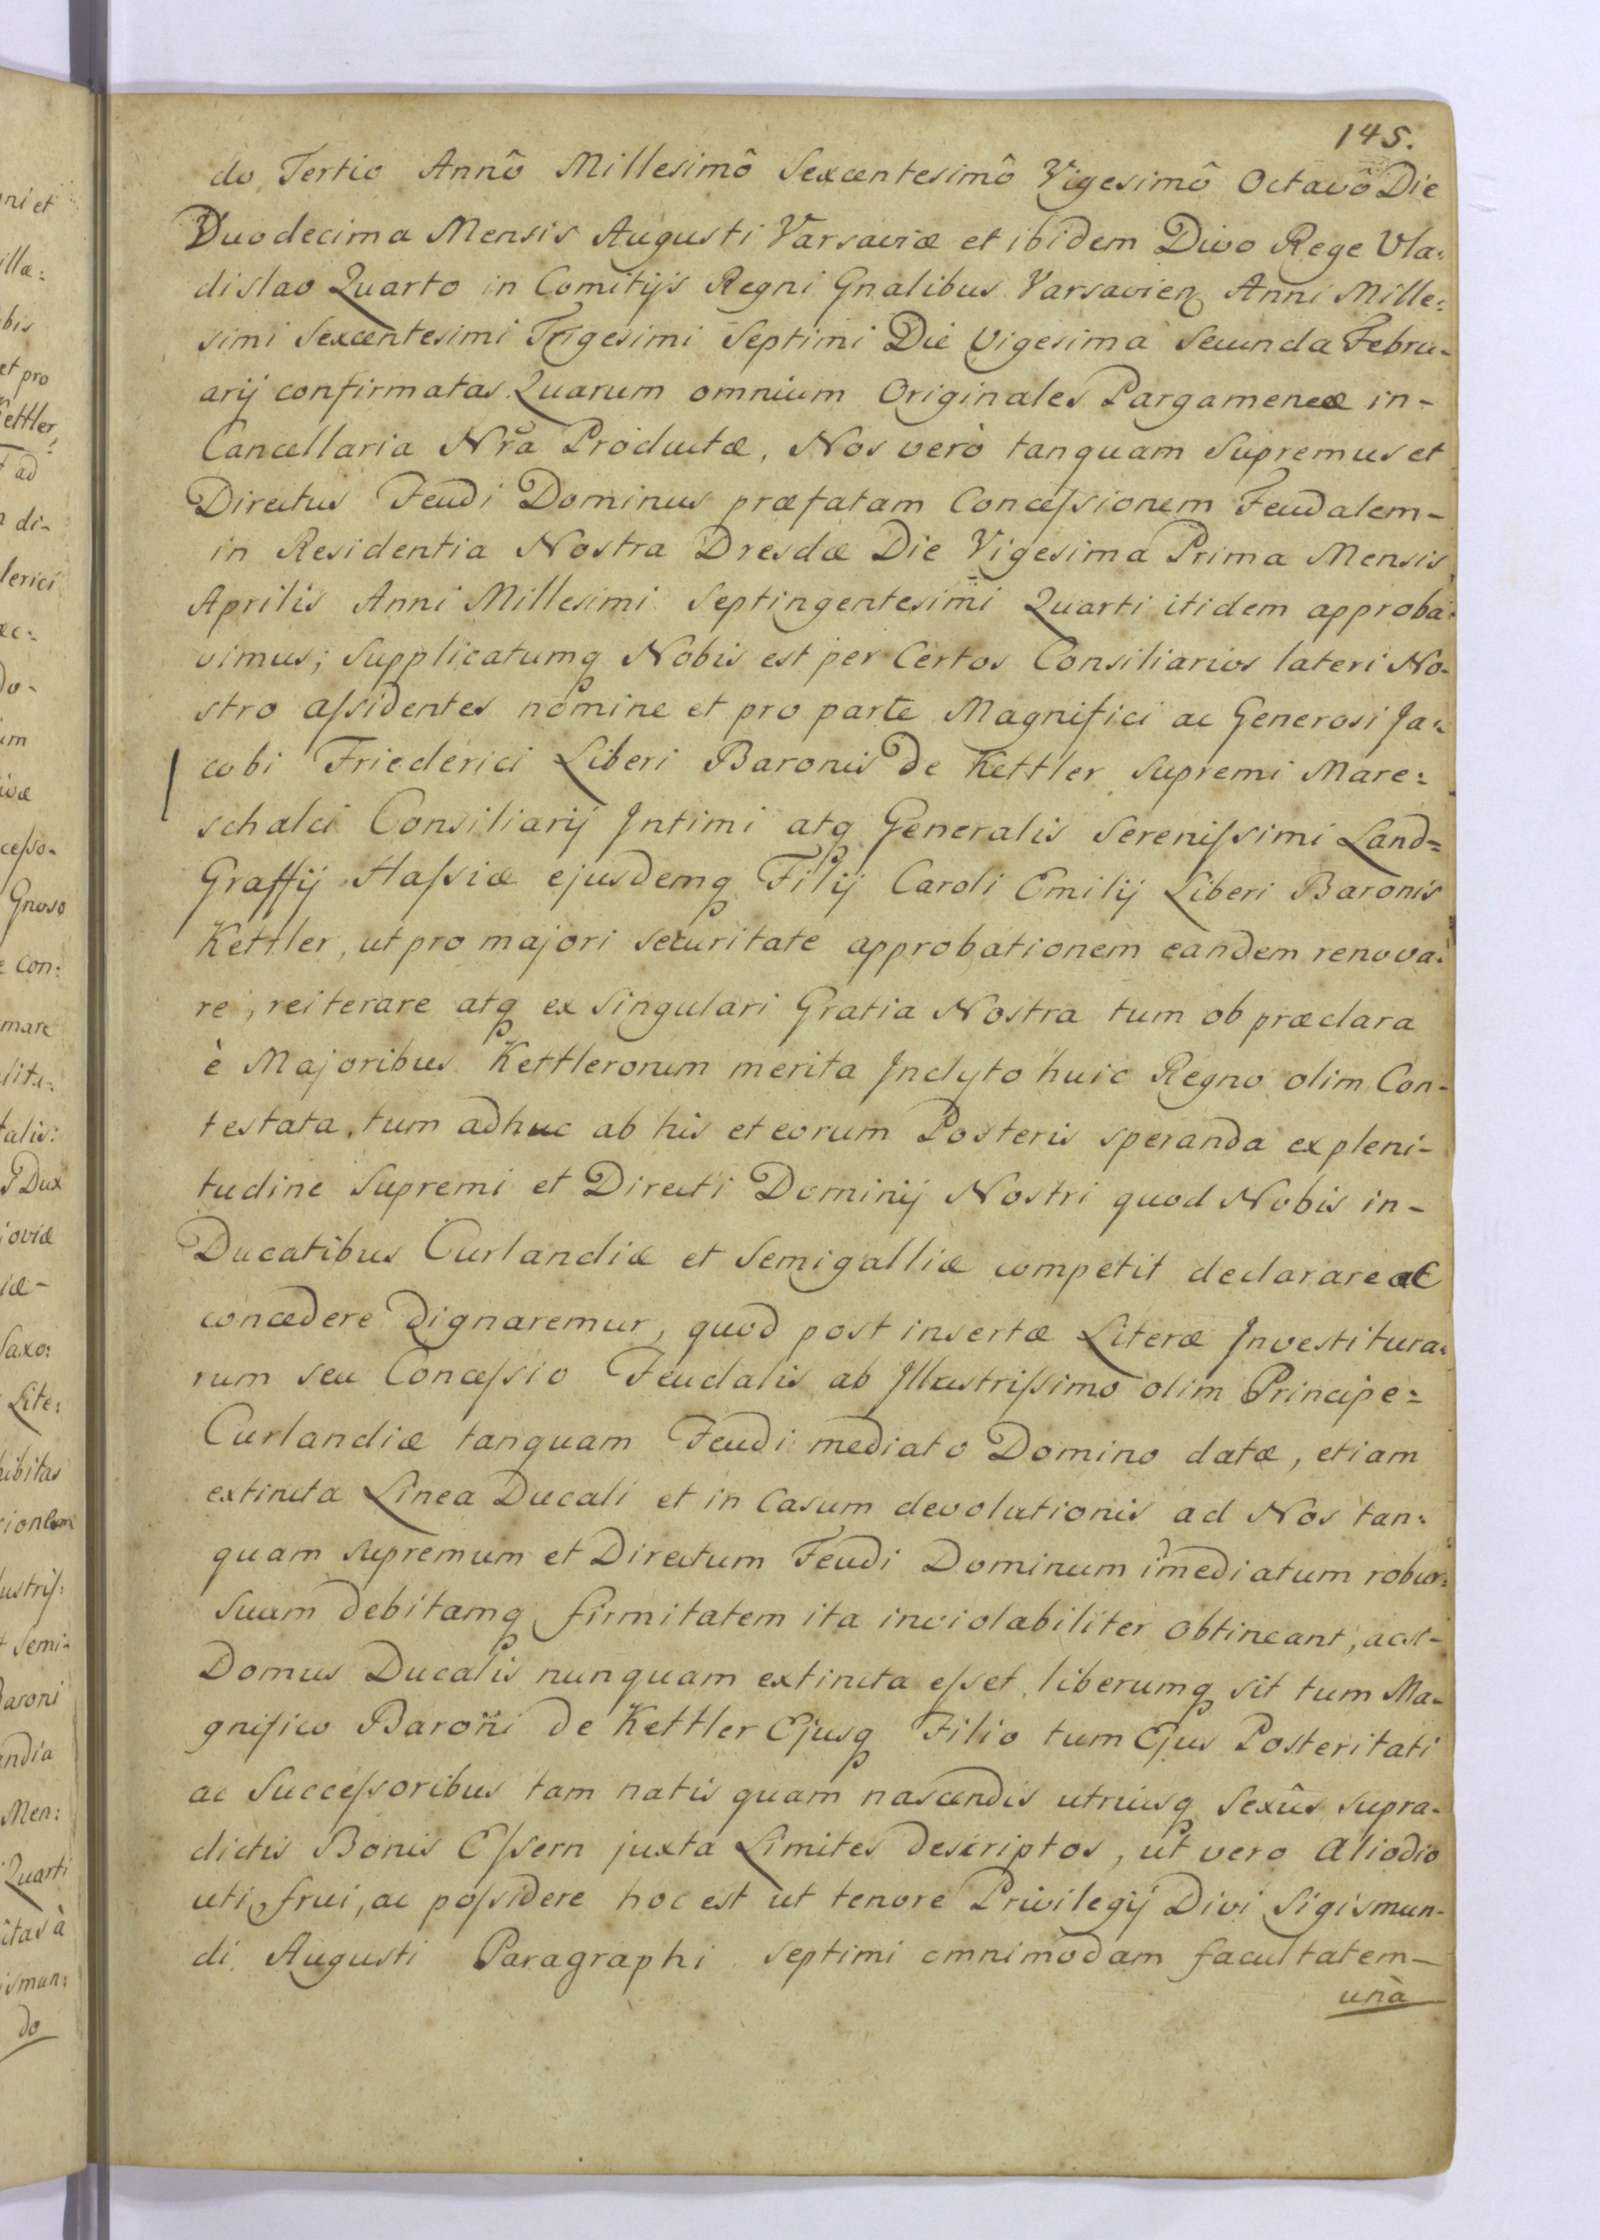 145.
do Tertio Annô Millesimô Sexcentesimô Vigesimô Octavô Die
Duodecima Mensis Augusti Varsaviæ et ibidem Divo Rege Vla:
dislao Quarto in Comitijs Regni Gnalibus Varsavienq Anni Mille:
simi Sexcentesimi Trigesimi Septimi Die Vigesima Secunda Febru-
arij confirmatas Quarum omnium Originales Pargameneæ in-
Cancellaria Nr̃a Productæ, Nos verò tanquam Supremus et
Directus Feudi Dominus præfatam Conceſsionem Feudalem-
in Residentia Nostra Dresdæ Die Vigesima Prima Mensis
Aprilis Anni Millesimi Septingentesimi Quarti itidem approba:
vimus; Supplicatumq Nobis est per Certos Consiliarios lateri No-
stro aſsidentes nomine et pro parte Magnifici ac Generosi Ja:
cobi Friederici Liberi Baronis de Kettler Supremi Mare:
schalci Consiliarij Intimi atq Generalis Sereniſsimi Land=
Graffij Haſsiæ ejusdemq Filij Caroli Emilij Liberi Baronis
Kettler, ut pro majori securitate approbationem eandem renova:
re, reiterare atq ex Singulari Gratia Nostra tum ob præclara
è Majoribus Kettlerorum merita Inclyto huic Regno olim Con-
testata, tum adhuc ab his et eorum Posteris speranda ex pleni-
tudine Supremi et Directi Dominij Nostri quod Nobis in-
Ducatibus Curlandiæ et Semigalliæ competit declarare ac
concedere dignaremur, quod post insertæ Literæ Investitura:
rum seu Conceſsio Feudalis ab Illustriſsimo olim Principe=
Curlandiæ tanquam Feudi mediato Domino datæ, etiam
extincta Linea Ducali et in Casum devolutionis ad Nos tan:
quam supremum et Directum Feudi Dominum im̃ediatum robur:
suum debitamq firmitatem ita inviolabiliter obtineant, acst-
Domus Ducalis nunquam extincta eſset, liberumq sit tum Ma-
gnifico Baroni de Kettler Ejusq Filio tum Ejus Posteritati
ac Succeſsoribus tam natis quam nascendis utriusq Sexûs supra-
dictis Bonis Eſsern juxta Limites descriptos, ut vero Aliodio
uti, frui, ac poſsidere hoc est ut tenore Privilegij Divi Sigismun-
di Augusti Paragraphi Septimi omnimodam facultatem-
unà